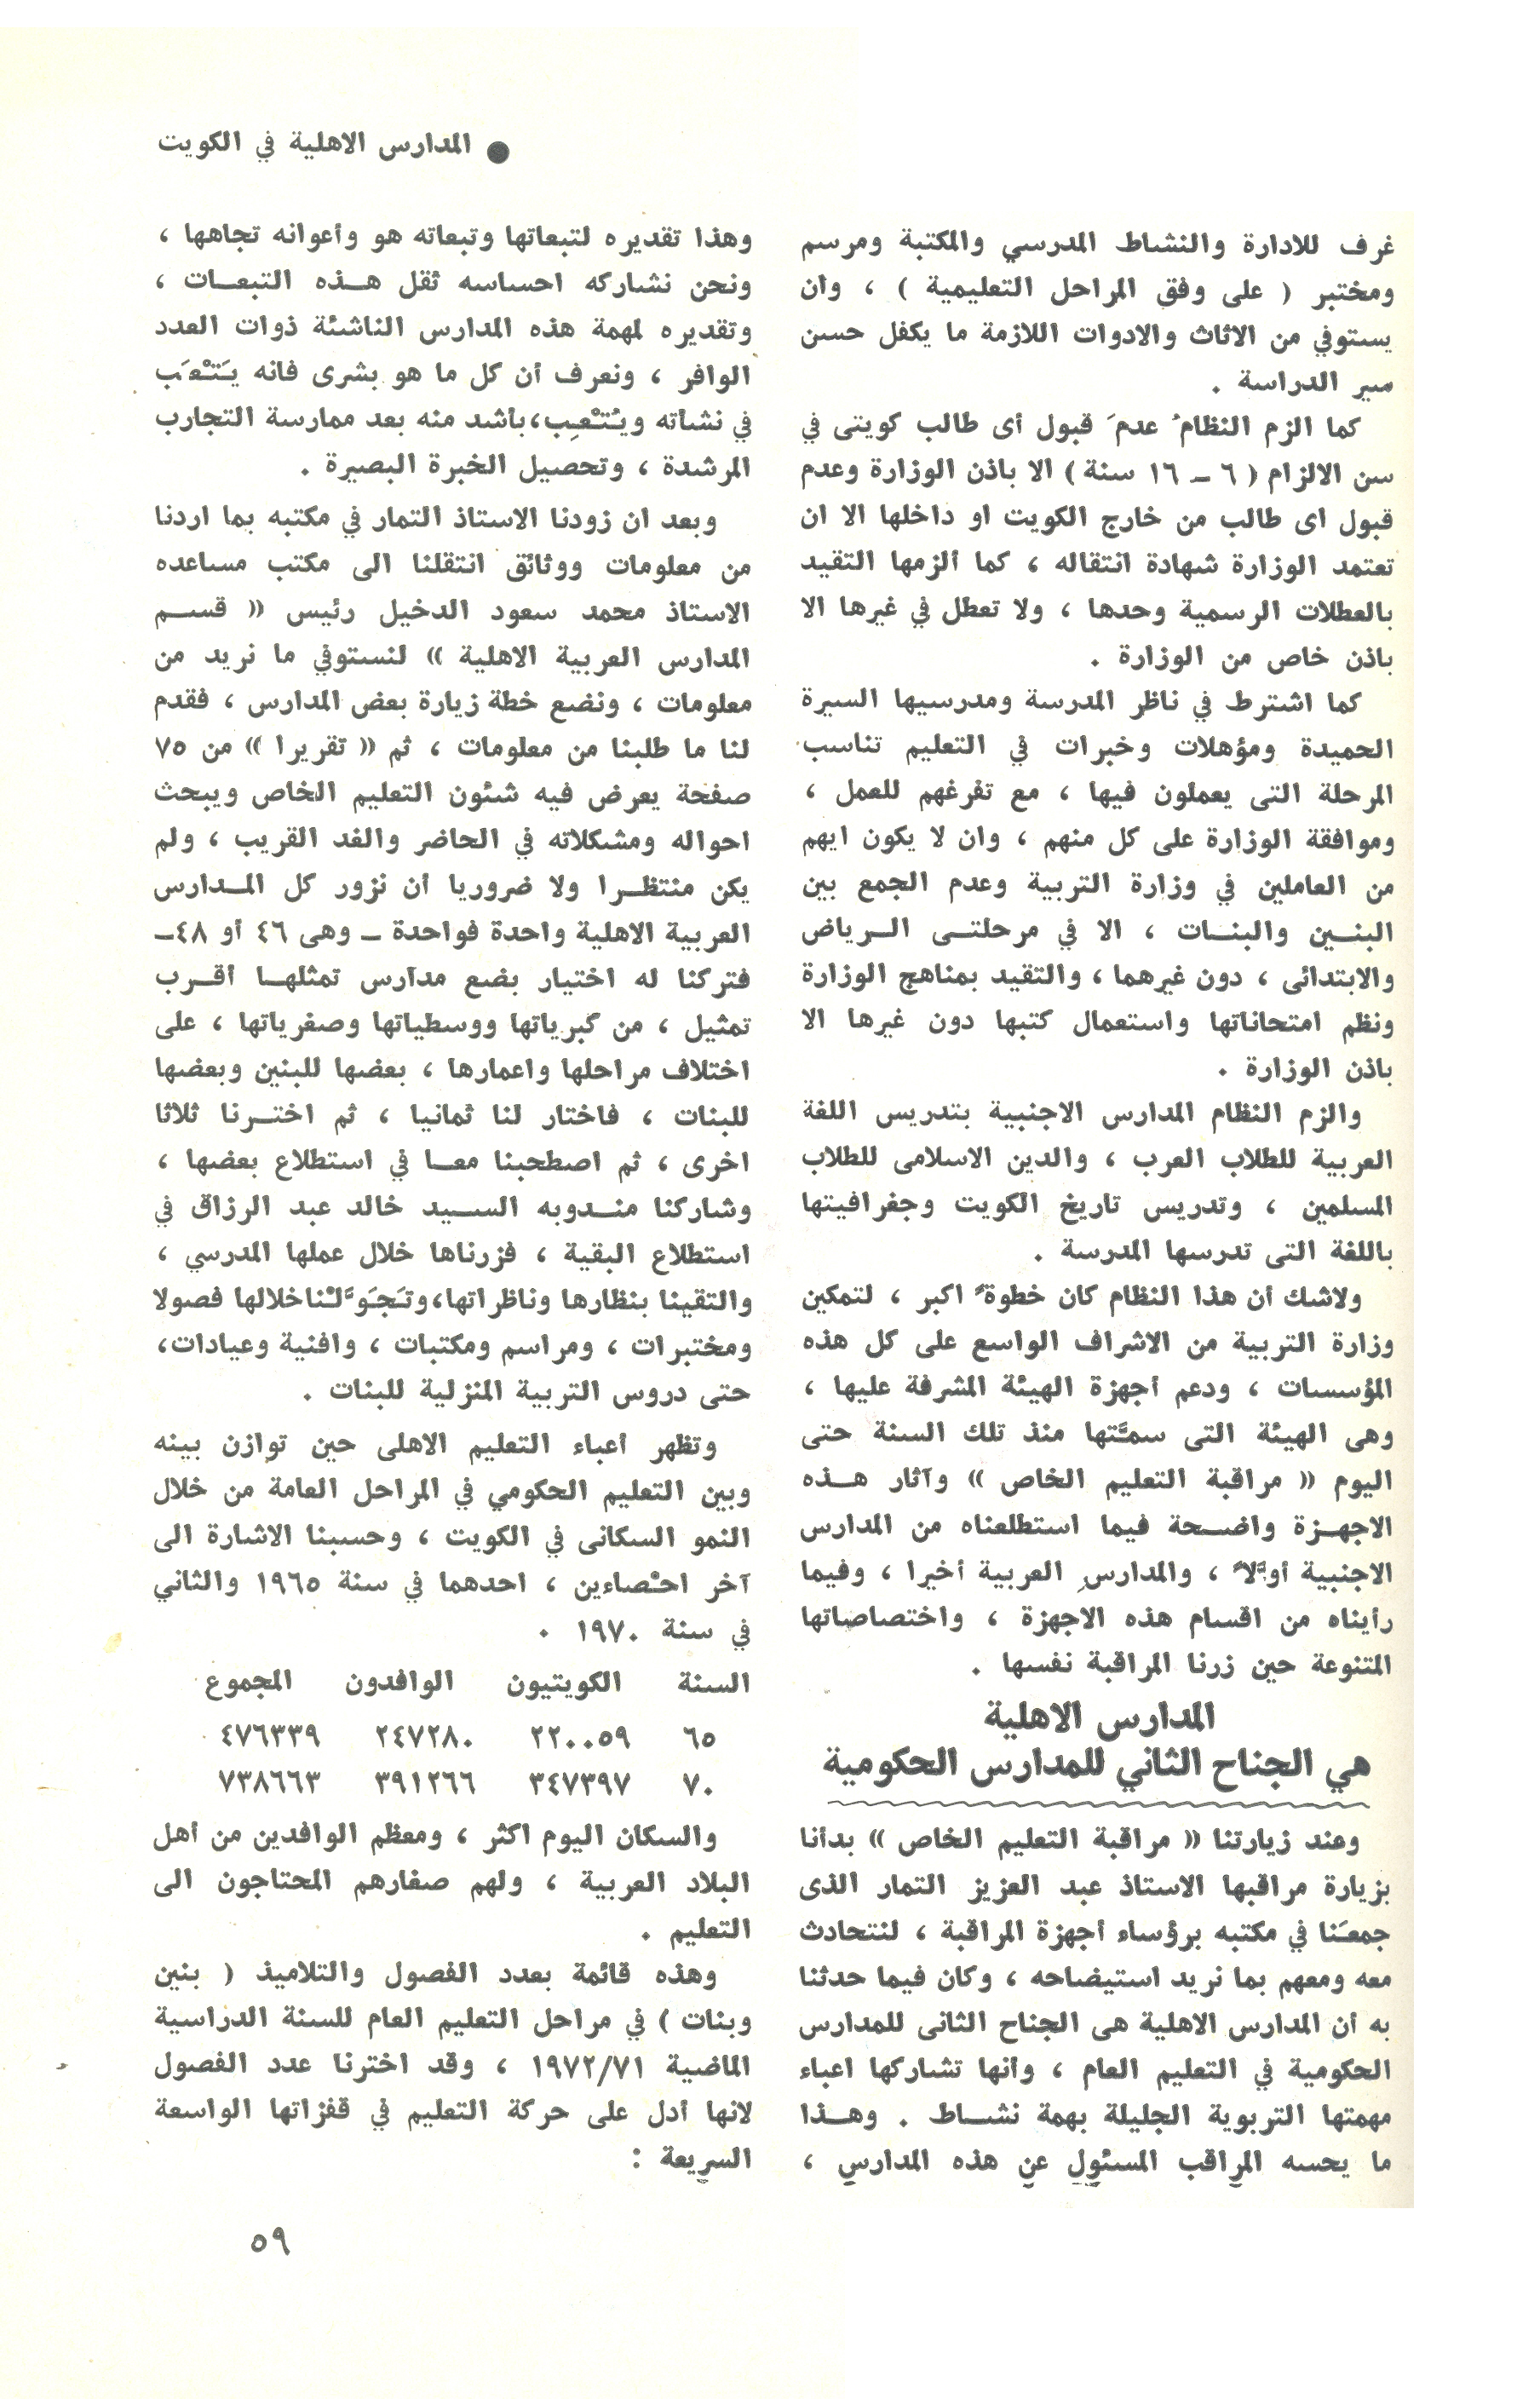 ● المدارس الاهلية في الكويت
غرف للادارة والنشاط المدرسي والمكتبة ومرسم
ومختبر ( على وفق المراحل التعليمية ) ، وأن
يستوفي من الاثاث والادوات اللازمة ما يكفل حسن
سير الدراسة .
كما الزم النظامُ عدمَ قبول أى طالب كويتى في
سن الالزام ( ٦ ــ ١٦ سنة ) الا باذن الوزارة وعدم
قبول اى طالب من خارج الكويت او داخلها الا ان
تعتمد الوزارة شهادة انتقاله ، كما ألزمها التقيد
بالعطلات الرسمية وحدها ، ولا تعطل في غيرها الا
باذن خاص من الوزارة .
كما اشترط في ناظر المدرسة ومدرسيها السيرة
الحميدة ومؤهلات وخبرات في التعليم تناسب
المرحلة التى يعملون فيها ، مع تفرغهم للعمل ،
وموافقة الوزارة على كل منهم ، وان لا يكون ايهم
من العاملين في وزارة التربية وعدم الجمع بين
البنــين والبنــات ، الا في مرحلتــى الــرياض
والابتدائى ، دون غيرهما ، والتقيد بمناهج الوزارة
ونظم امتحاناتها واستعمال كتبها دون غيرها الا
باذن الوزارة .
والزم النظام المدارس الاجنبية بتدريس اللغة
العربية للطلاب العرب ، والدين الاسلامى للطلاب
المسلمين ، وتدريس تاريخ الكويت وجغرافيتها
باللغة التى تدرسها المدرسة .
ولاشك أن هذا النظام كان خطوةً اكبر ، لتمكين
وزارة التربية من الاشراف الواسع على كل هذه
المؤسسات ، ودعم أجهزة الهيئة المشرفة عليها ،
وهى الهيئة التى سمَّتها منذ تلك السنة حتى
اليوم (( مراقبة التعليم الخاص )) وآثار هــذه
الاجهــزة واضــحة فيما استطلعناه من المدارس
الاجنبية أوَّلاً ، والمدارس العربية أخيرا ، وفيما
رأيناه من اقسام هذه الاجهزة ، واختصاصاتها
المتنوعة حين زرنا المراقبة نفسها .
المدارس الاهلية
هي الجناح الثاني للمدارس الحكومية
وعند زيارتنا (( مراقبة التعليم الخاص )) بدأنا
بزيارة مراقبها الاستاذ عبد العزيز التمار الذى
جمعَنا في مكتبه برؤساء أجهزة المراقبة ، لنتحادث
معه ومعهم بما نريد استيضاحه ، وكان فيما حدثنا
به أن المدارس الاهلية هى الجناح الثانى للمدارس
الحكومية في التعليم العام ، وأنها تشاركها اعباء
مهمتها التربوية الجليلة بهمة نشــاط . وهــذا
ما يحسه المراقب المسئول عن هذه المدارس ،
وهذا تقديره لتبعاتها وتبعاته هو وأعوانه تجاهها ،
ونحن نشاركه احساسه ثقل هــذه التبعــات ،
وتقديره لمهمة هذه المدارس الناشئة ذوات العدد
الوافر ، ونعرف أن كل ما هو بشرى فانه يَتْعَب
في نشأته ويُتْعِب،بأشد منه بعد ممارسة التجارب
المرشدة ، وتحصيل الخبرة البصيرة .
وبعد ان زودنا الاستاذ التمار في مكتبه بما اردنا
من معلومات ووثائق انتقلنا الى مكتب مساعده
الاستاذ محمد سعود الدخيل رئيس (( قســم
المدارس العربية الاهلية )) لنستوفي ما نريد من
معلومات ، ونضع خطة زيارة بعض المدارس ، فقدم
لنا ما طلبنا من معلومات ، ثم (( تقريرا )) من ٧٥
صفحة يعرض فيه شئون التعليم الخاص ويبحث
احواله ومشكلاته في الحاضر والغد القريب ، ولم
يكن منتظــرا ولا ضروريا أن نزور كل المــدارس
العربية الاهلية واحدة فواحدة ــ وهى ٤٦ أو ٤٨ــ
فتركنا له اختيار بضع مدارس تمثلهــا أقــرب
تمثيل ، من كبرياتها ووسطياتها وصغرياتها ، على
اختلاف مراحلها واعمارها ، بعضها للبنين وبعضها
للبنات ، فاختار لنا ثمانيا ، ثم اختــرنا ثلاثا
اخرى ، ثم اصطحبنا معــا في استطلاع بعضها ،
وشاركنا منــدوبه الســيد خالد عبد الرزاق في
استطلاع البقية ، فزرناها خلال عملها المدرسي ،
والتقينا بنظارها وناظراتها،وتَجَوَّلْنا خلالها فصولا
ومختبرات ، ومراسم ومكتبات ، وافنية وعيادات،
حتى دروس التربية المنزلية للبنات .
وتظهر أعباء التعليم الاهلى حين توازن بينه
وبين التعليم الحكومي في المراحل العامة من خلال
النمو السكانى في الكويت ، وحسبنا الاشارة الى
آخر احْصاءين ، احدهما في سنة ١٩٦٥ والثاني
في سنة ١٩٧٠ .
السنة الكويتيون الوافدون المجموع
٦٥ ٢٢٠٠٥٩ ٢٤٧٢٨٠ ٤٧٦٣٣٩
٧٠ ٣٤٧٣٩٧ ٣٩١٢٦٦ ٧٣٨٦٦٣
والسكان اليوم أكثر ، ومعظم الوافدين من أهل
البلاد العربية ، ولهم صغارهم المحتاجون الى
التعليم .
وهذه قائمة بعدد الفصول والتلاميذ ( بنين
وبنات ) في مراحل التعليم العام للسنة الدراسية
الماضية ١٩٧٢/٧١ ، وقد اخترنا عدد الفصول
لانها أدل على حركة التعليم في قفزاتها الواسعة
السريعة :
٥٩